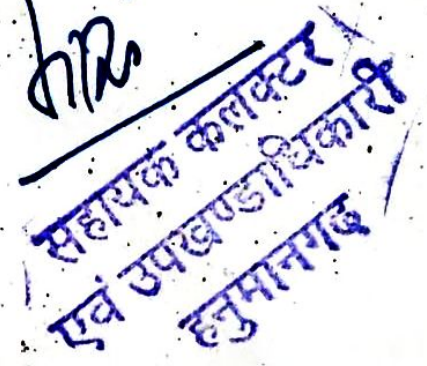 सहायक कलक्टर
एवं उपखण्डाधिकारी
हनुमानगढ़